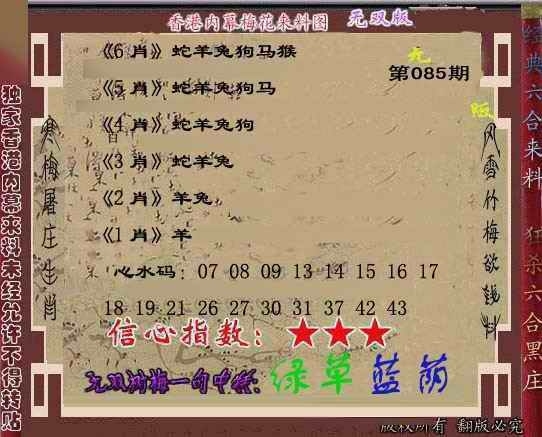 香港内幕梅花来料图 无双版
《6 肖》蛇羊兔狗马猴
第085期
《5 肖》蛇羊兔狗马
《4 肖》蛇羊兔狗
《3 肖》蛇羊兔
《2 肖》羊兔
《1 肖》羊
心水码： 07 08 09 13 14 15 16 17
18 19 21 26 27 30 31 37 42 43
信心指数：★★★
无双踏梅一句中特：绿草蓝荫
版权所有 翻版必究
独家香港内幕来料未经允许不得转贴
寒梅屠庄生肖
无版
风雪竹梅欲钱料
经典六合来料 狂杀六合黑庄